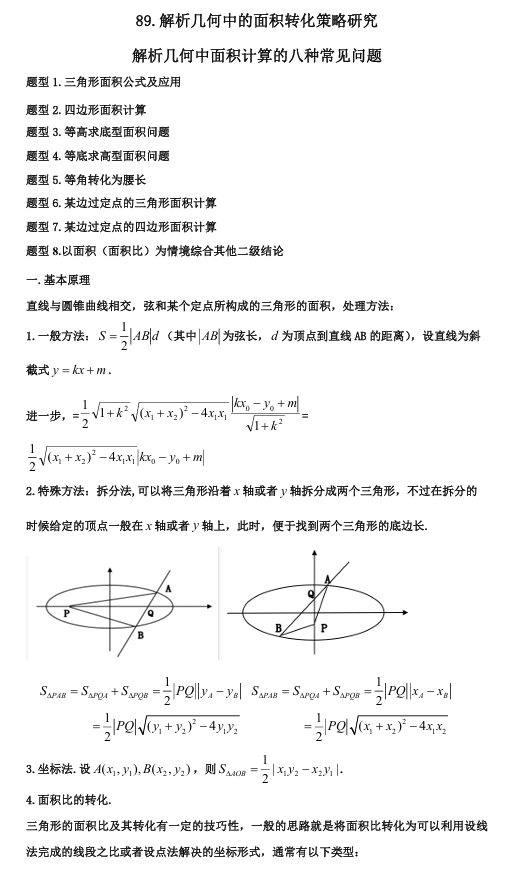 89.解析几何中的面积转化策略研究
解析几何中面积计算的八种常见问题
题型 1.三角形面积公式及应用
题型 2.四边形面积计算
题型 3.等高求底型面积问题
题型 4.等底求高型面积问题
题型 5.等角转化为腰长
题型 6.某边过定点的三角形面积计算
题型 7.某边过定点的四边形面积计算
题型 8.以面积（面积比）为情境综合其他二级结论
一.基本原理
直线与圆锥曲线相交，弦和某个定点所构成的三角形的面积，处理方法：
1.一般方法：S=\frac{1}{2}|AB|d（其中|AB|为弦长，d 为顶点到直线 AB 的距离），设直线为斜
截式 y=kx+m．
进一步，=\frac{1}{2}\sqrt{1+k^2}\sqrt{(x_1+x_2)^2-4x_1x_1}\frac{|kx_0-y_0+m|}{\sqrt{1+k^2}}=
\frac{1}{2}\sqrt{(x_1+x_2)^2-4x_1x_1}|kx_0-y_0+m|
2.特殊方法：拆分法,可以将三角形沿着 x 轴或者 y 轴拆分成两个三角形，不过在拆分的
时候给定的顶点一般在 x 轴或者 y 轴上，此时，便于找到两个三角形的底边长.
A
P
Q
B
A
Q
B
P
S_{ΔPAB}=S_{ΔPQA}+S_{ΔPQB}=\frac{1}{2}|PQ||y_A-y_B|
=\frac{1}{2}|PQ|\sqrt{(y_1+y_2)^2-4y_1y_2}
S_{ΔPAB}=S_{ΔPQA}+S_{ΔPQB}=\frac{1}{2}|PQ||x_A-x_B|
=\frac{1}{2}|PQ|\sqrt{(x_1+x_2)^2-4x_1x_2}
3.坐标法.设 A(x_1,y_1),B(x_2,y_2)，则 S_{ΔAOB}=\frac{1}{2}|x_1y_2-x_2y_1|．
4.面积比的转化.
三角形的面积比及其转化有一定的技巧性，一般的思路就是将面积比转化为可以利用设线
法完成的线段之比或者设点法解决的坐标形式，通常有以下类型：